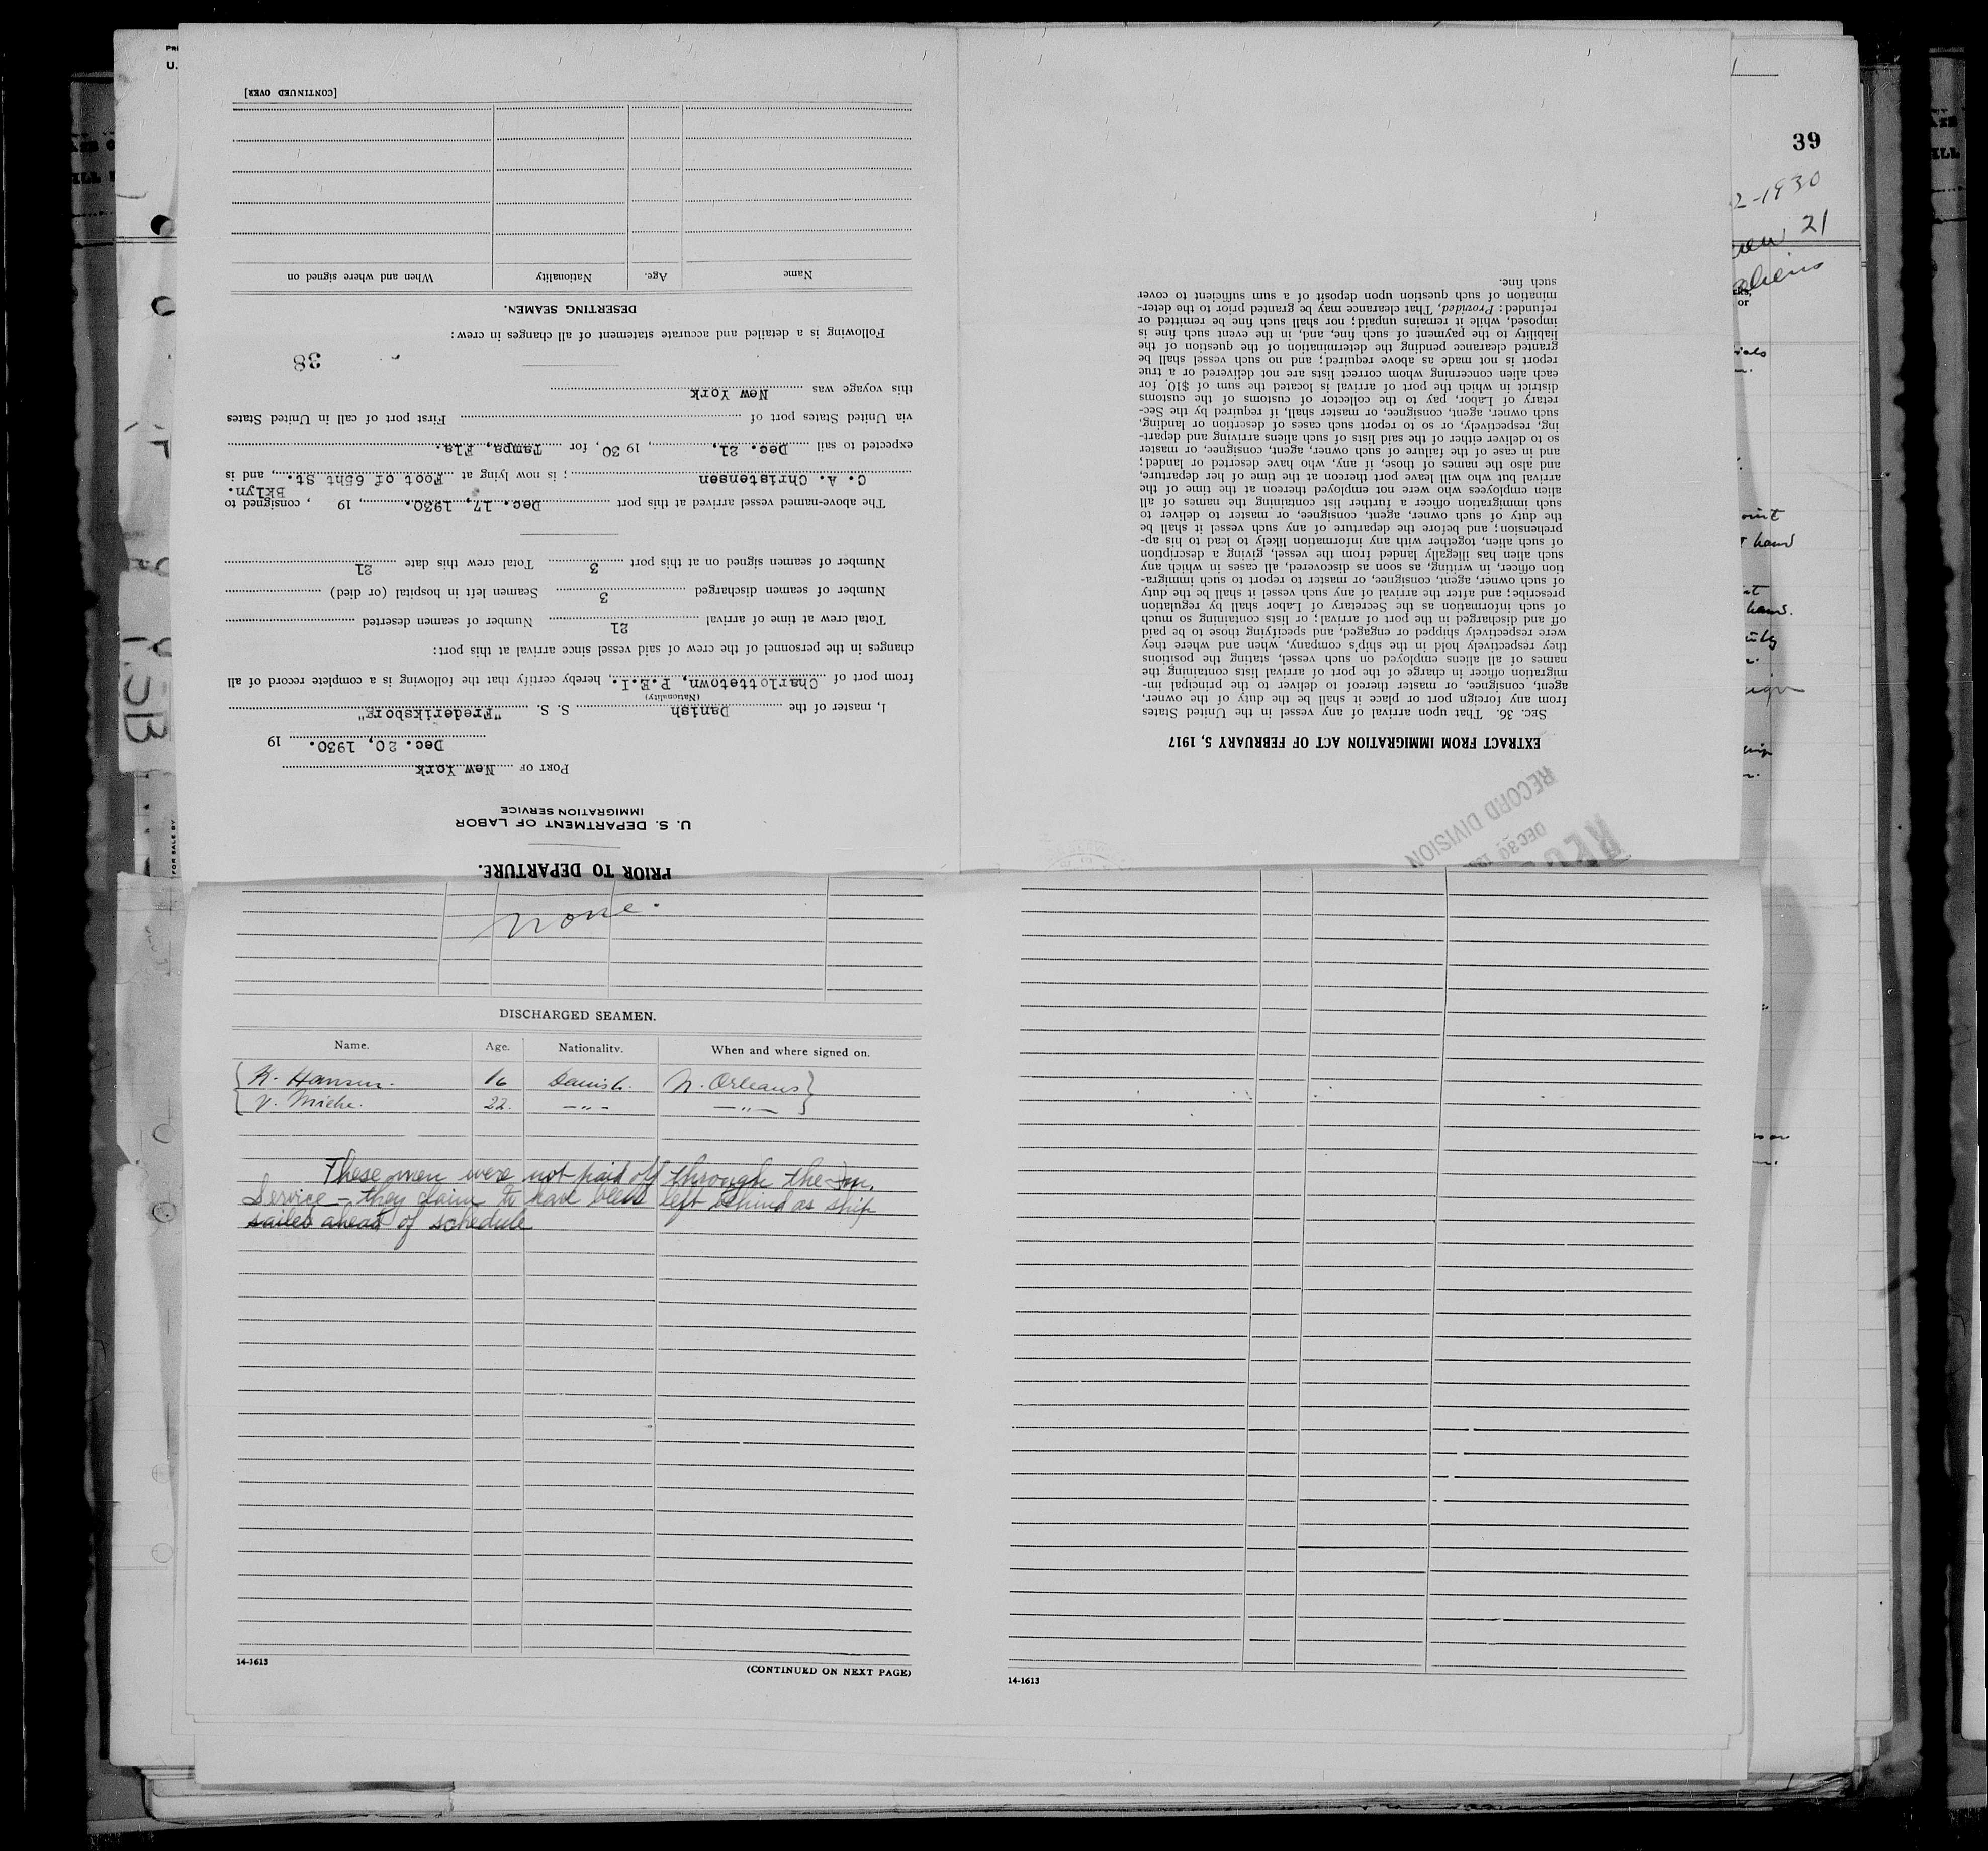 PRIOR TO DEPARTURE.
U. S. DEPARTMENT OF LABOR
IMMIGRATION SERVICE
PORT OF New York
Dec. 20, 1930. 19
I, master of the Danish S. S. "Frederiksborg"
(Nationality)
from port of Charlottetown, P.E.I., hereby certify that the following is a complete record of all
changes in the personnel of the crew of said vessel since arrival at this port:
Total crew at time of arrival 21 Number of seamen deserted
Number of seamen discharged 3 Seamen left in hospital (or died)
Number of seamen signed on at this port 3 Total crew this date 21
The above-named vessel arrived at this port Dec. 17, 1930. , 19 , consigned to
C. A. Christensen ; is now lying at Foot of 65ht St. Bklyn. , and is
expected to sail Dec. 21, , 19 30, for Tampa, Fla.
via United States port of First port of call in United States
this voyage was New York
38
Following is a detailed and accurate statement of all changes in crew:
DESERTING SEAMEN.
Name Age. Nationality When and where signed on
[CONTINUED OVER]
RECORD DIVISION
EXTRACT FROM IMMIGRATION ACT OF FEBRUARY 5, 1917
SEC. 36. That upon arrival of any vessel in the United States
from any foreign port or place it shall be the duty of the owner,
agent, consignee, or master thereof to deliver to the principal im-
migration officer in charge of the port of arrival lists containing the
names of all aliens employed on such vessel, stating the positions
they respectively hold in the ship's company, when and where they
were respectively shipped or engaged, and specifying those to be paid
off and discharged in the port of arrival; or lists containing so much
of such information as the Secretary of Labor shall by regulation
prescribe; and after the arrival of any such vessel it shall be the duty
of such owner, agent, consignee, or master to report to such immigra-
tion officer, in writing, as soon as discovered, all cases in which any
such alien has illegally landed from the vessel, giving a description
of such alien, together with any information likely to lead to his ap-
prehension; and before the departure of any such vessel it shall be
the duty of such owner, agent, consignee, or master to deliver to
such immigration officer a further list containing the names of all
alien employees who were not employed thereon at the time of the
arrival but who will leave port thereon at the time of her departure,
and also the names of those, if any, who have deserted or landed;
and in case of the failure of such owner, agent, consignee, or master
so to deliver either of the said lists of such aliens arriving and depart-
ing, respectively, or so to report such cases of desertion or landing,
such owner, agent, consignee, or master shall, if required by the Sec-
retary of Labor, pay to the collector of customs of the customs
district in which the port of arrival is located the sum of $10 for
each alien concerning whom correct lists are not delivered or a true
report is not made as above required; and no such vessel shall be
granted clearance pending the determination of the question of the
liability to the payment of such fine, and, in the event such fine is
imposed, while it remains unpaid; nor shall such fine be remitted or
refunded: Provided, That clearance may be granted prior to the deter-
mination of such question upon deposit of a sum sufficient to cover
such fine.
39
2-1930
21
aliens
none.
DISCHARGED SEAMEN.
Name. Age. Nationality. When and where signed on.
K. Hansen. 16 Danish. N. Orleans
V. Miche. 22. -"- -"-
These men were not paid off through the Im.
Service - they claim to have been left behind as ship
sailed ahead of schedule
14-1613
(CONTINUED ON NEXT PAGE)
14-1613